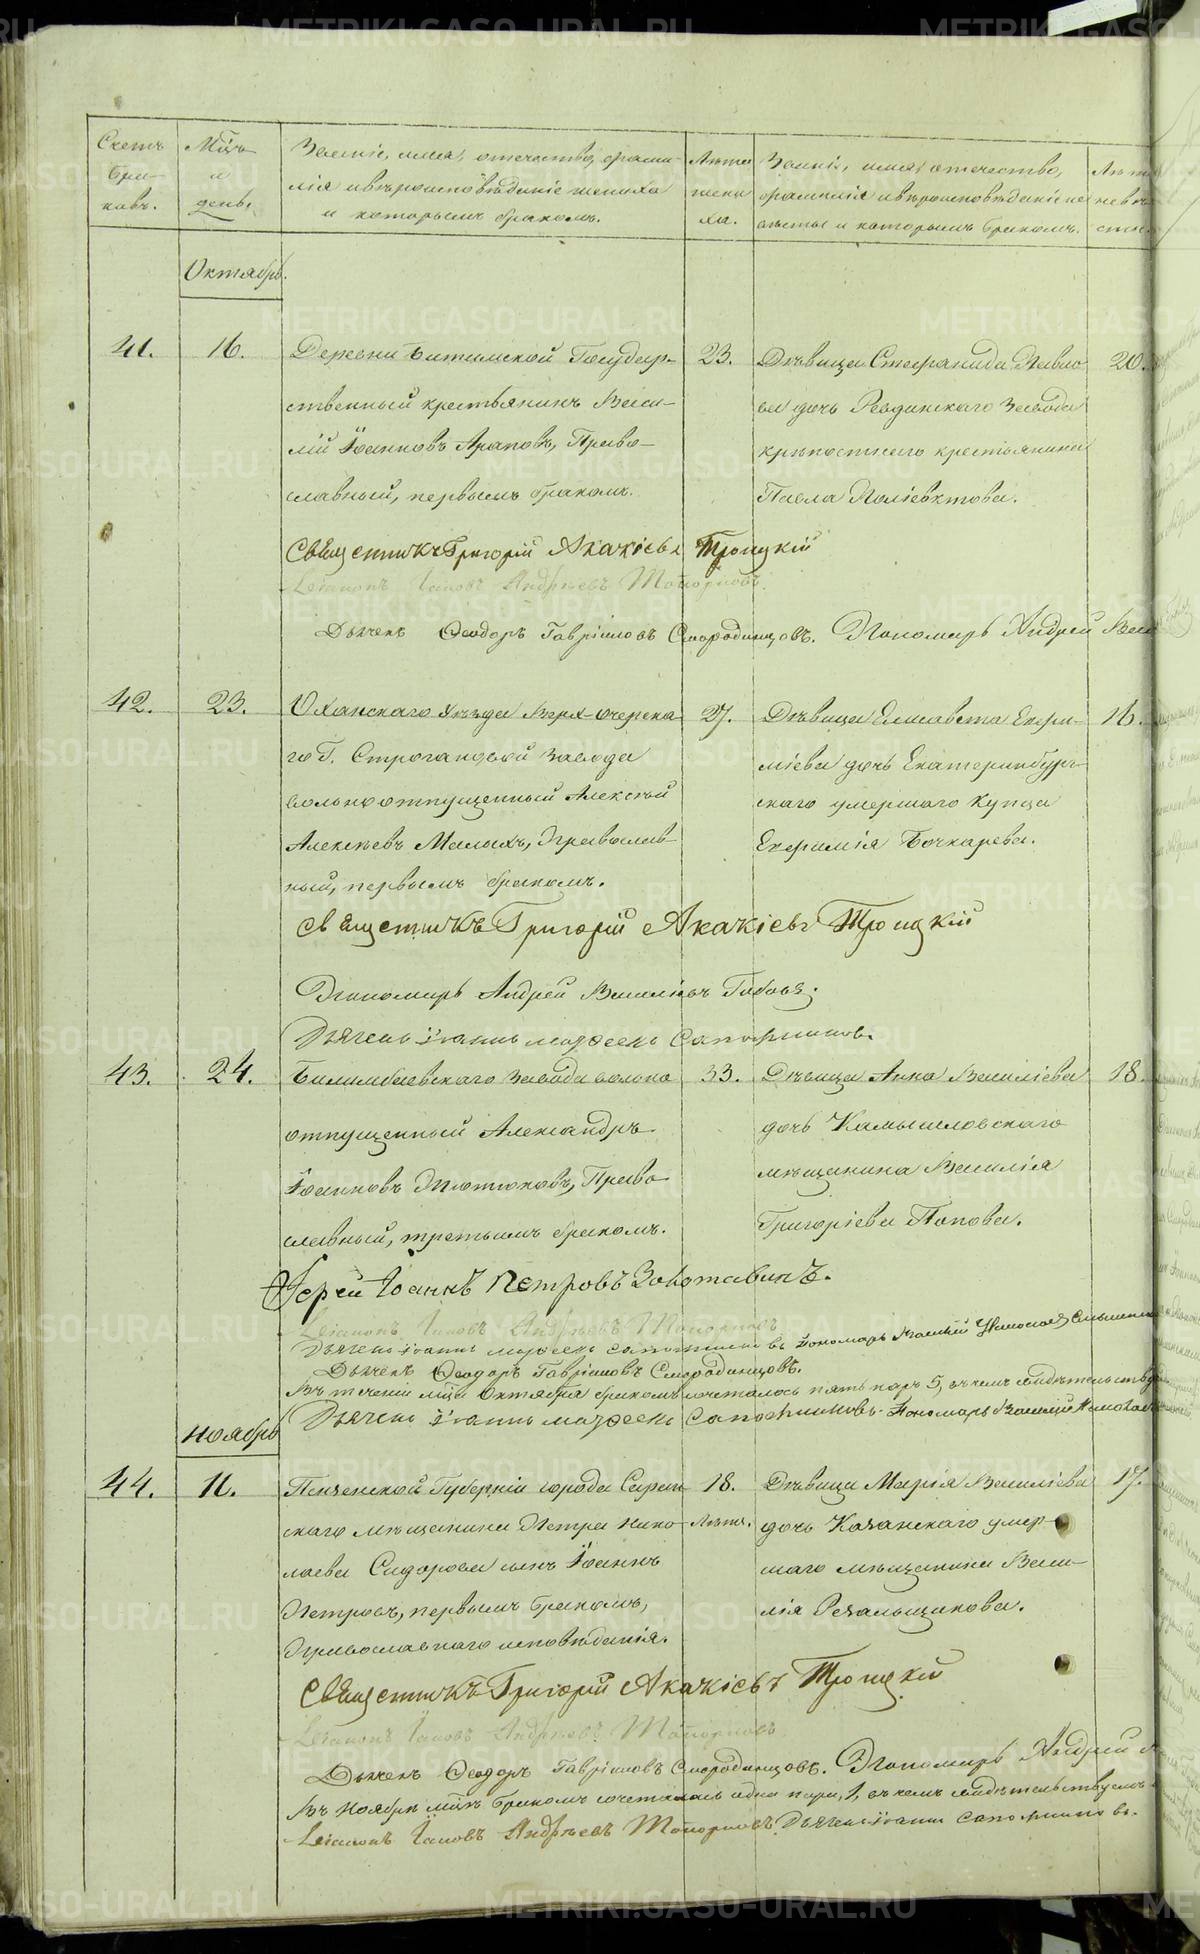 METRIKI.GASO-URAL.RU
Счетъ браковъ.
Мѣсц. и день.
Званіе, имя, отчество, фами-
лія и вѣроисповѣданіе жениха
и которымъ бракомъ.
Лѣта жениха.
Званіе, имя, отечество,
фамилія и вѣроисповѣданіе не
вѣсты и которымъ бракомъ.
Лѣта невѣсты.
Октябрь.
41. 16.
Деревни Битимской Государ-
ственный крестьянинъ Васи-
лій Іоанновъ Араповъ, Право-
славный, первымъ бракомъ.
23.
Дѣвица Стефанида Павло
ва дочь Ревдинскаго Завода
крѣпостнаго крестьянина
Павла Поліевктова.
20.
Священникъ Григорій Акакіевъ Троицкій
Діаконъ Іаковъ Андрѣевъ Топорковъ.
Дьячекъ Ѳеодоръ Гавріиловъ Смородинцовъ. Пономарь Андрей
42. 23.
Оханскаго Уѣзда
го Г. Строгановой Завода
вольноотпущенный Алексѣй
Алексѣевъ Малыхъ, Православ-
ный, первымъ бракомъ.
27.
Дѣвица Елисавета Ефи-
міева дочь Екатеринбург-
скаго умершаго купца
Бочкарева.
16.
Священникъ Григорій Акакіевъ Троицкій
Пономарь Андрей Василіевъ
Дьячекъ Іоаннъ Сапожниковъ.
43. 24.
Билимбаевскаго Завода вольно
отпущенный Александръ
Іоанновъ Право-
славный, третьимъ бракомъ.
33.
Дѣвица Анна Василіева
дочь Камышловскаго
мѣщанина Василія
Григоріева Попова.
18.
Іерей Іоаннъ Петровъ Золотавинъ.
Діаконъ Іаковъ Андрѣевъ Топорковъ
Дьячекъ Іоаннъ Сапожниковъ Пономарь
Дьячекъ Ѳеодоръ Гавріиловъ Смородинцовъ.
Въ теченіи мѣсца Октября бракомъ сочеталось пять паръ 5, въ чемъ свидѣтельствуемъ
Дьячекъ Іоаннъ Сапожниковъ. Пономарь
Ноябрь
44. 11.
Пензенской Губерніи города Саран
скаго мѣщанина Петра Нико-
лаева Сидорова сынъ Іоаннъ
Петровъ, первымъ бракомъ,
Православнаго исповѣданія.
18. Лѣтъ.
Дѣвица Марія Василіева
дочь Казанскаго умер-
шаго мѣщанина Васи-
лія Резальщикова.
17.
Священникъ Григорій Акакіевъ Троицкій
Діаконъ Іаковъ Андрѣевъ Топорковъ
Дьячекъ Ѳеодоръ Гавріиловъ Смородинцовъ. Пономарь Андрей
Въ Ноябрѣ мцѣ бракомъ сочеталась одна пара, 1, въ чемъ свидѣтельствуемъ
Діаконъ Іаковъ Андрѣевъ Топорковъ. Дьячекъ Іоаннъ Сапожниковъ.